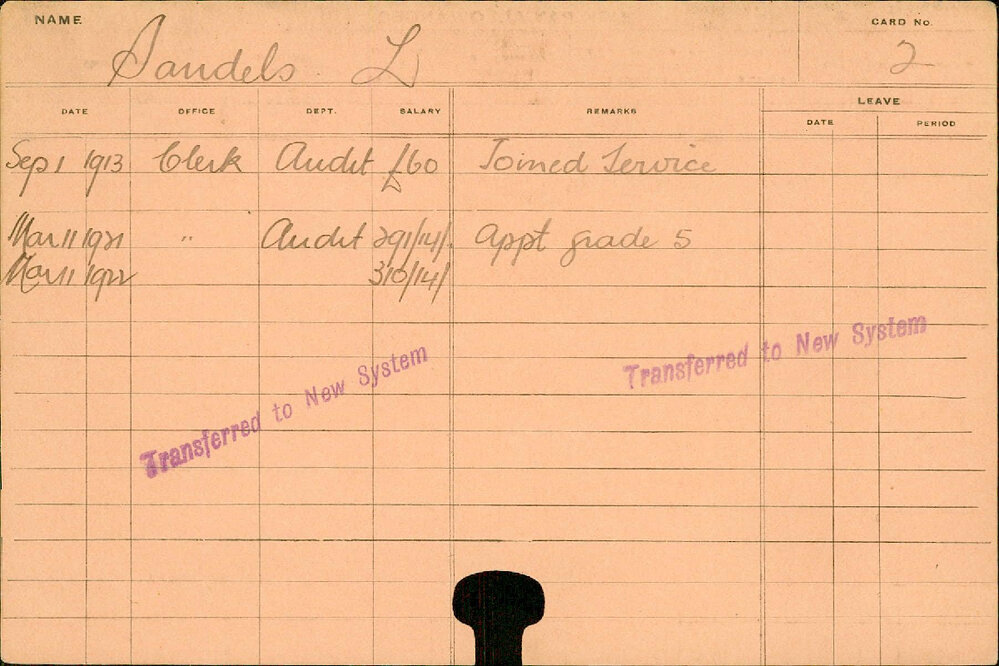 NAME
CARD No.
Sandels L
2
DATE OFFICE DEPT. SALARY REMARKS LEAVE
DATE PERIOD
Sep 1 1913 Clerk Audit £60 Joined Service
Mar 11 1921 " Audit 291/14/. Appt grade 5
Mar 11 1922 310/14/
Transferred to New System
Transferred to New System